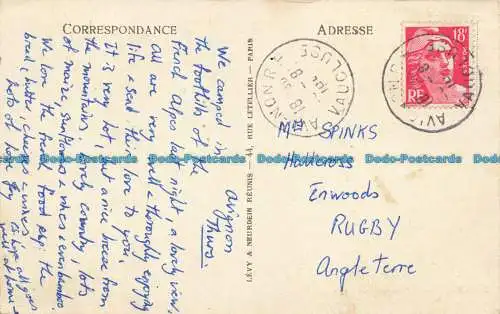 CORRESPONDANCE
Avignon
Thurs.
We camped in
the foothills of the
French Alps last night a lovely view,
all are very well & thoroughly enjoying
life & send their love to you.
It is very hot, but a nice breeze from
the mountains, lovely country, lots
of maize, sunflowers & vines & even bamboo.
We love the French food esp: the
bread, butter, cheeses & wines &
hope all goes
well at home
lots of love
LÉVY & NEURDEIN RÉUNIS - 44, RUE LETELLIER - PARIS
ADRESSE
18F
RF
AVIGNON R.P.
VAUCLUSE
Mrs SPINKS
Hallcross
RUGBY
Angleterre
Dodo-Postcards Dodo-Postcards Dodo-Postcards Dodo-Postcards Dodo-Postcards